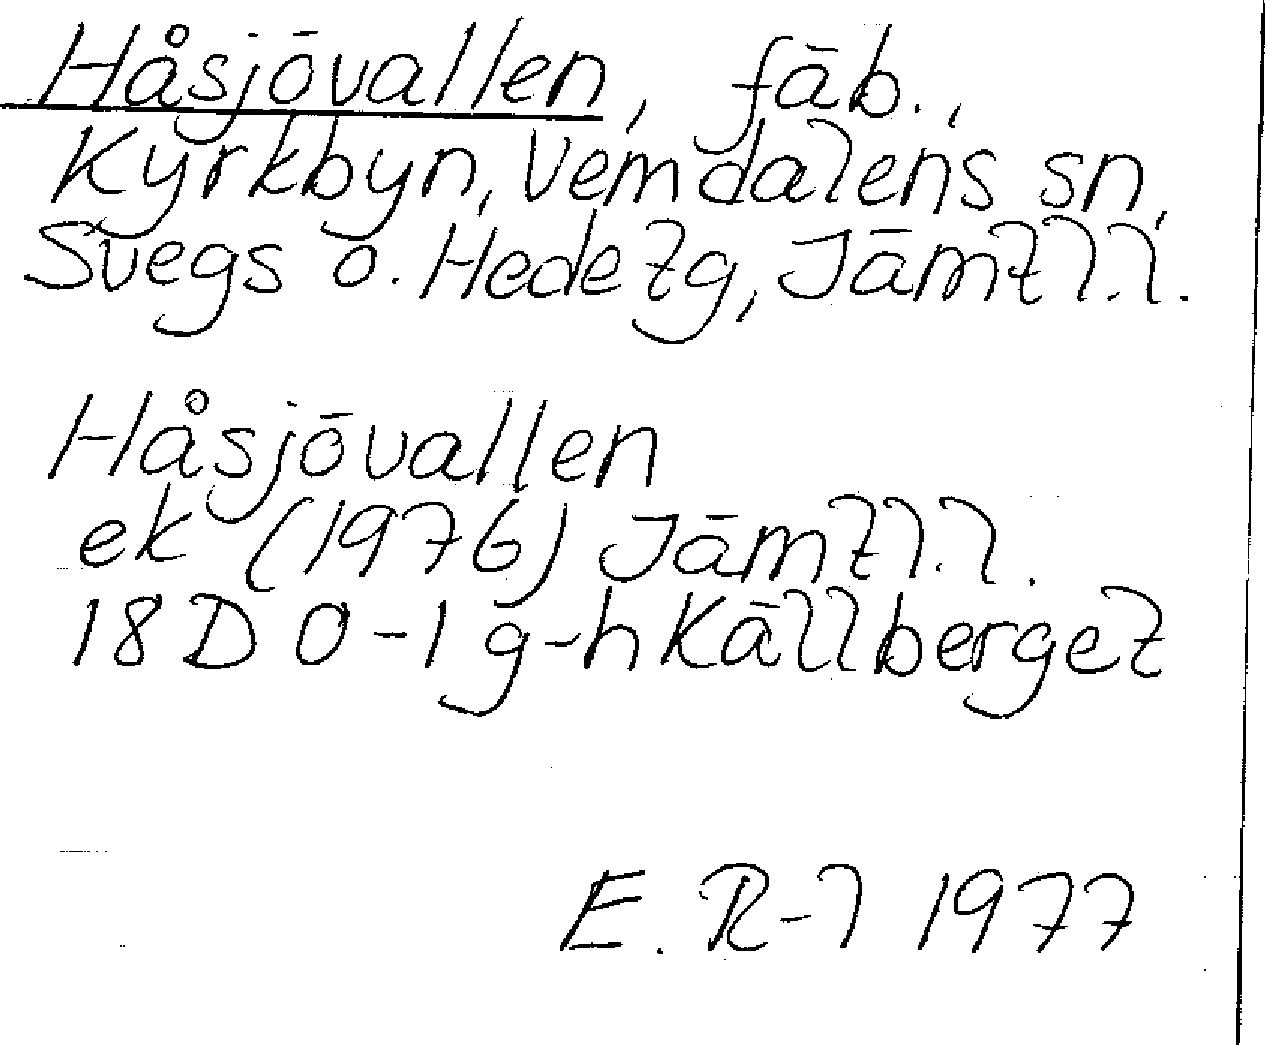 Håsjövallen, fäb.,
Kyrkbyn, Vemdalens sn,
Svegs o. Hede tg, Jämtl. l.
Håsjövallen
ek (1976) Jämtl. l.
18D 0-1 g-h Källberget
E. R-l 1977